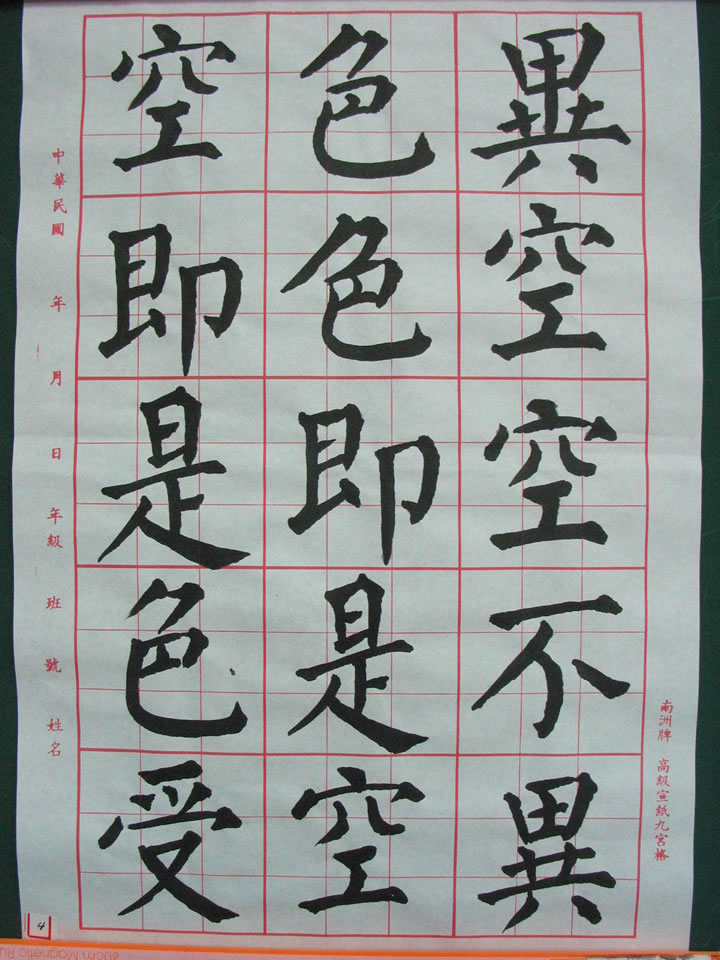 異空空不異
色色即是空
空即是色受
中華民國 年 月 日 年級 班 號 姓名
南洲牌 高級宣紙九宮格
4